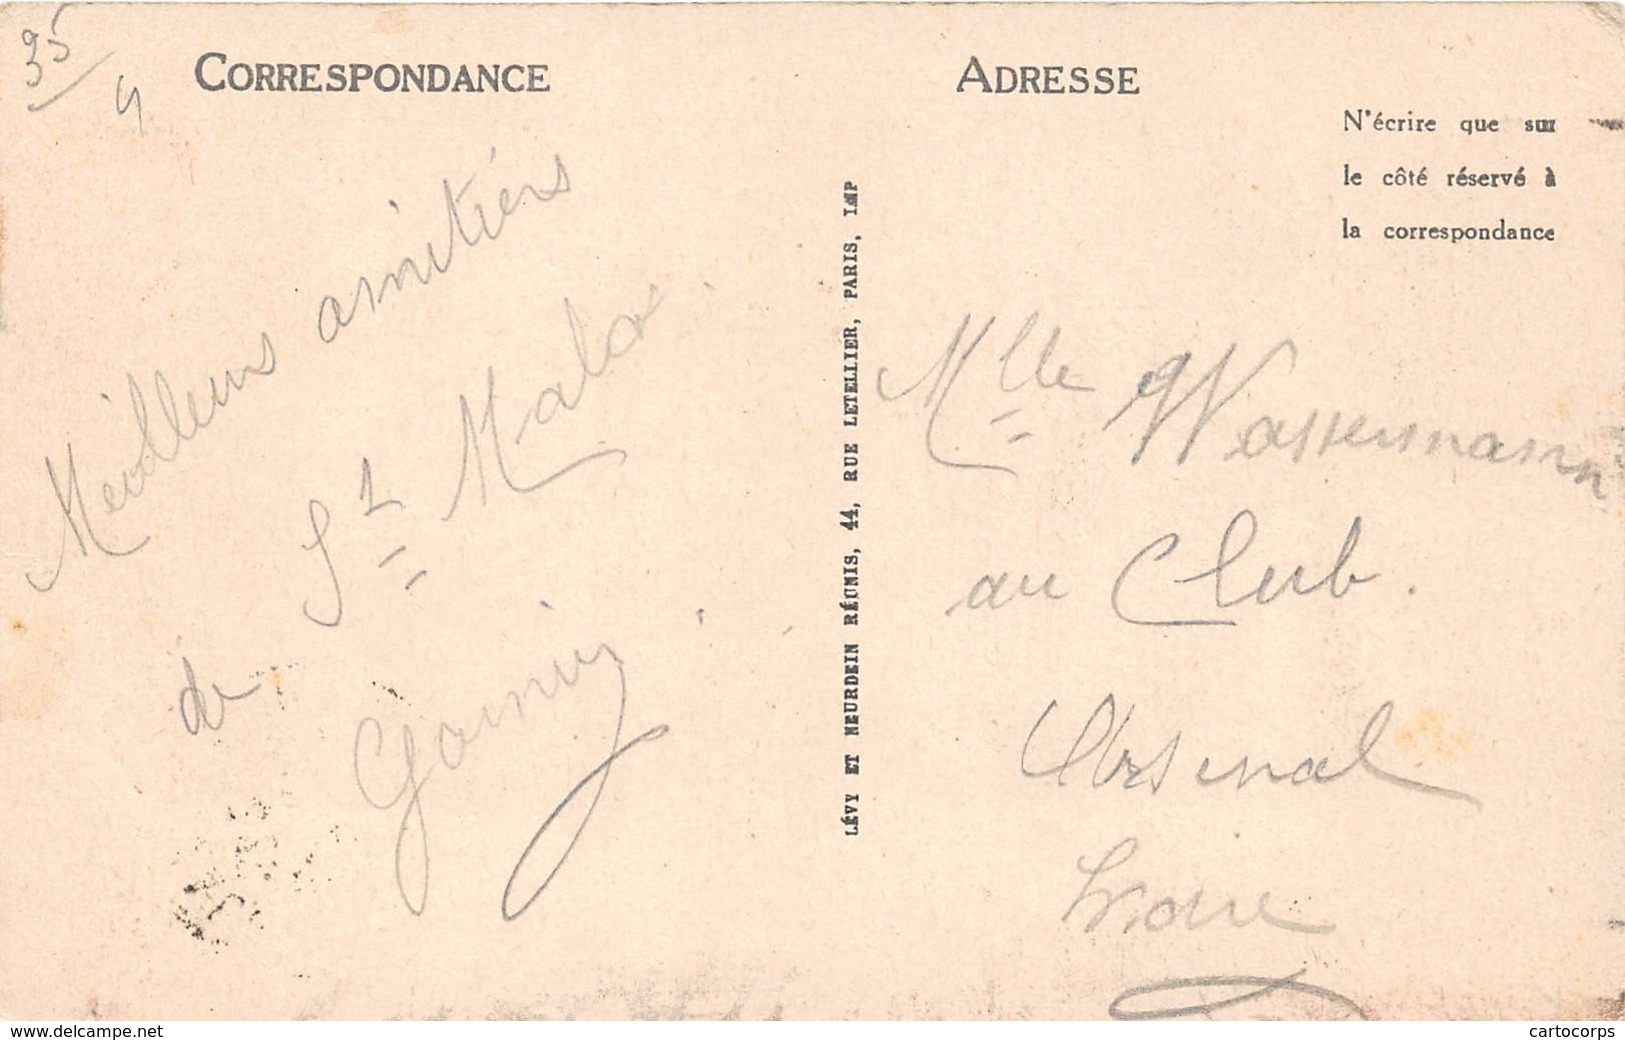 35
4
CORRESPONDANCE
Meilleurs amitiérs
de St Malo.
ADRESSE
N'écrire que sur
le côté réservé à
la correspondance
LÉVY ET NEURDEIN RÉUNIS, 44, RUE LETELLIER, PARIS, IMP
Mlle Wassermann
au Club.
Arsenal
www.delcampe.net
cartocorps